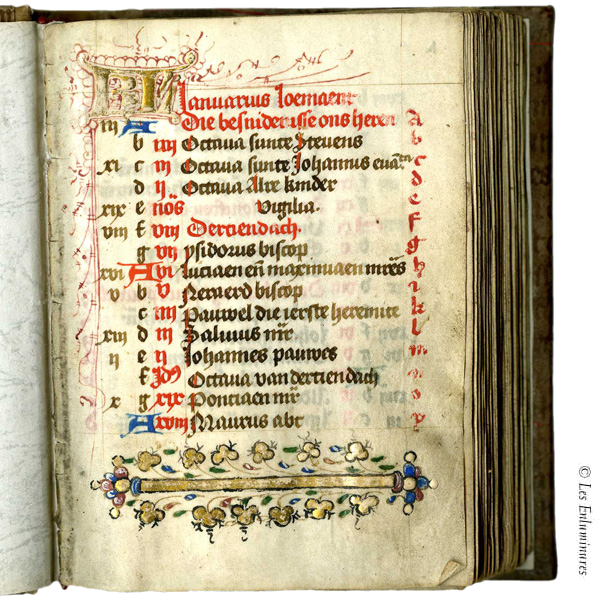 KL Januarius loemaent
iij A Die besniderisse ons heren a
b iiij Octava sunte Stevens b
xi c iij Octava sunte Johannus c
d ij Octava Alre kinder d
xix e nōs Vigilia. e
viij f viij Dertiendach. f
g vij ysidorus biscop g
xvi A vi Luciaen eñ maximiaen mr̄es h
v b v biscop i
c iiij Pauwel die ierste heremite k
xiij d iij Salvius mr̄ l
ij e ij Johannes pauwes m
f Octava van dertiendach n
x g xix Pontiaen mr̄ o
A xviij Maurus abt p
© Les Enluminures